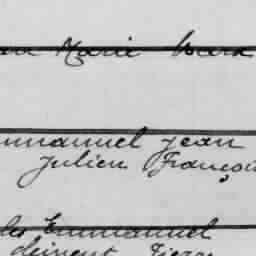 Marie
Emmanuel Jean
Julien François
Emmanuel
Clément Pierre